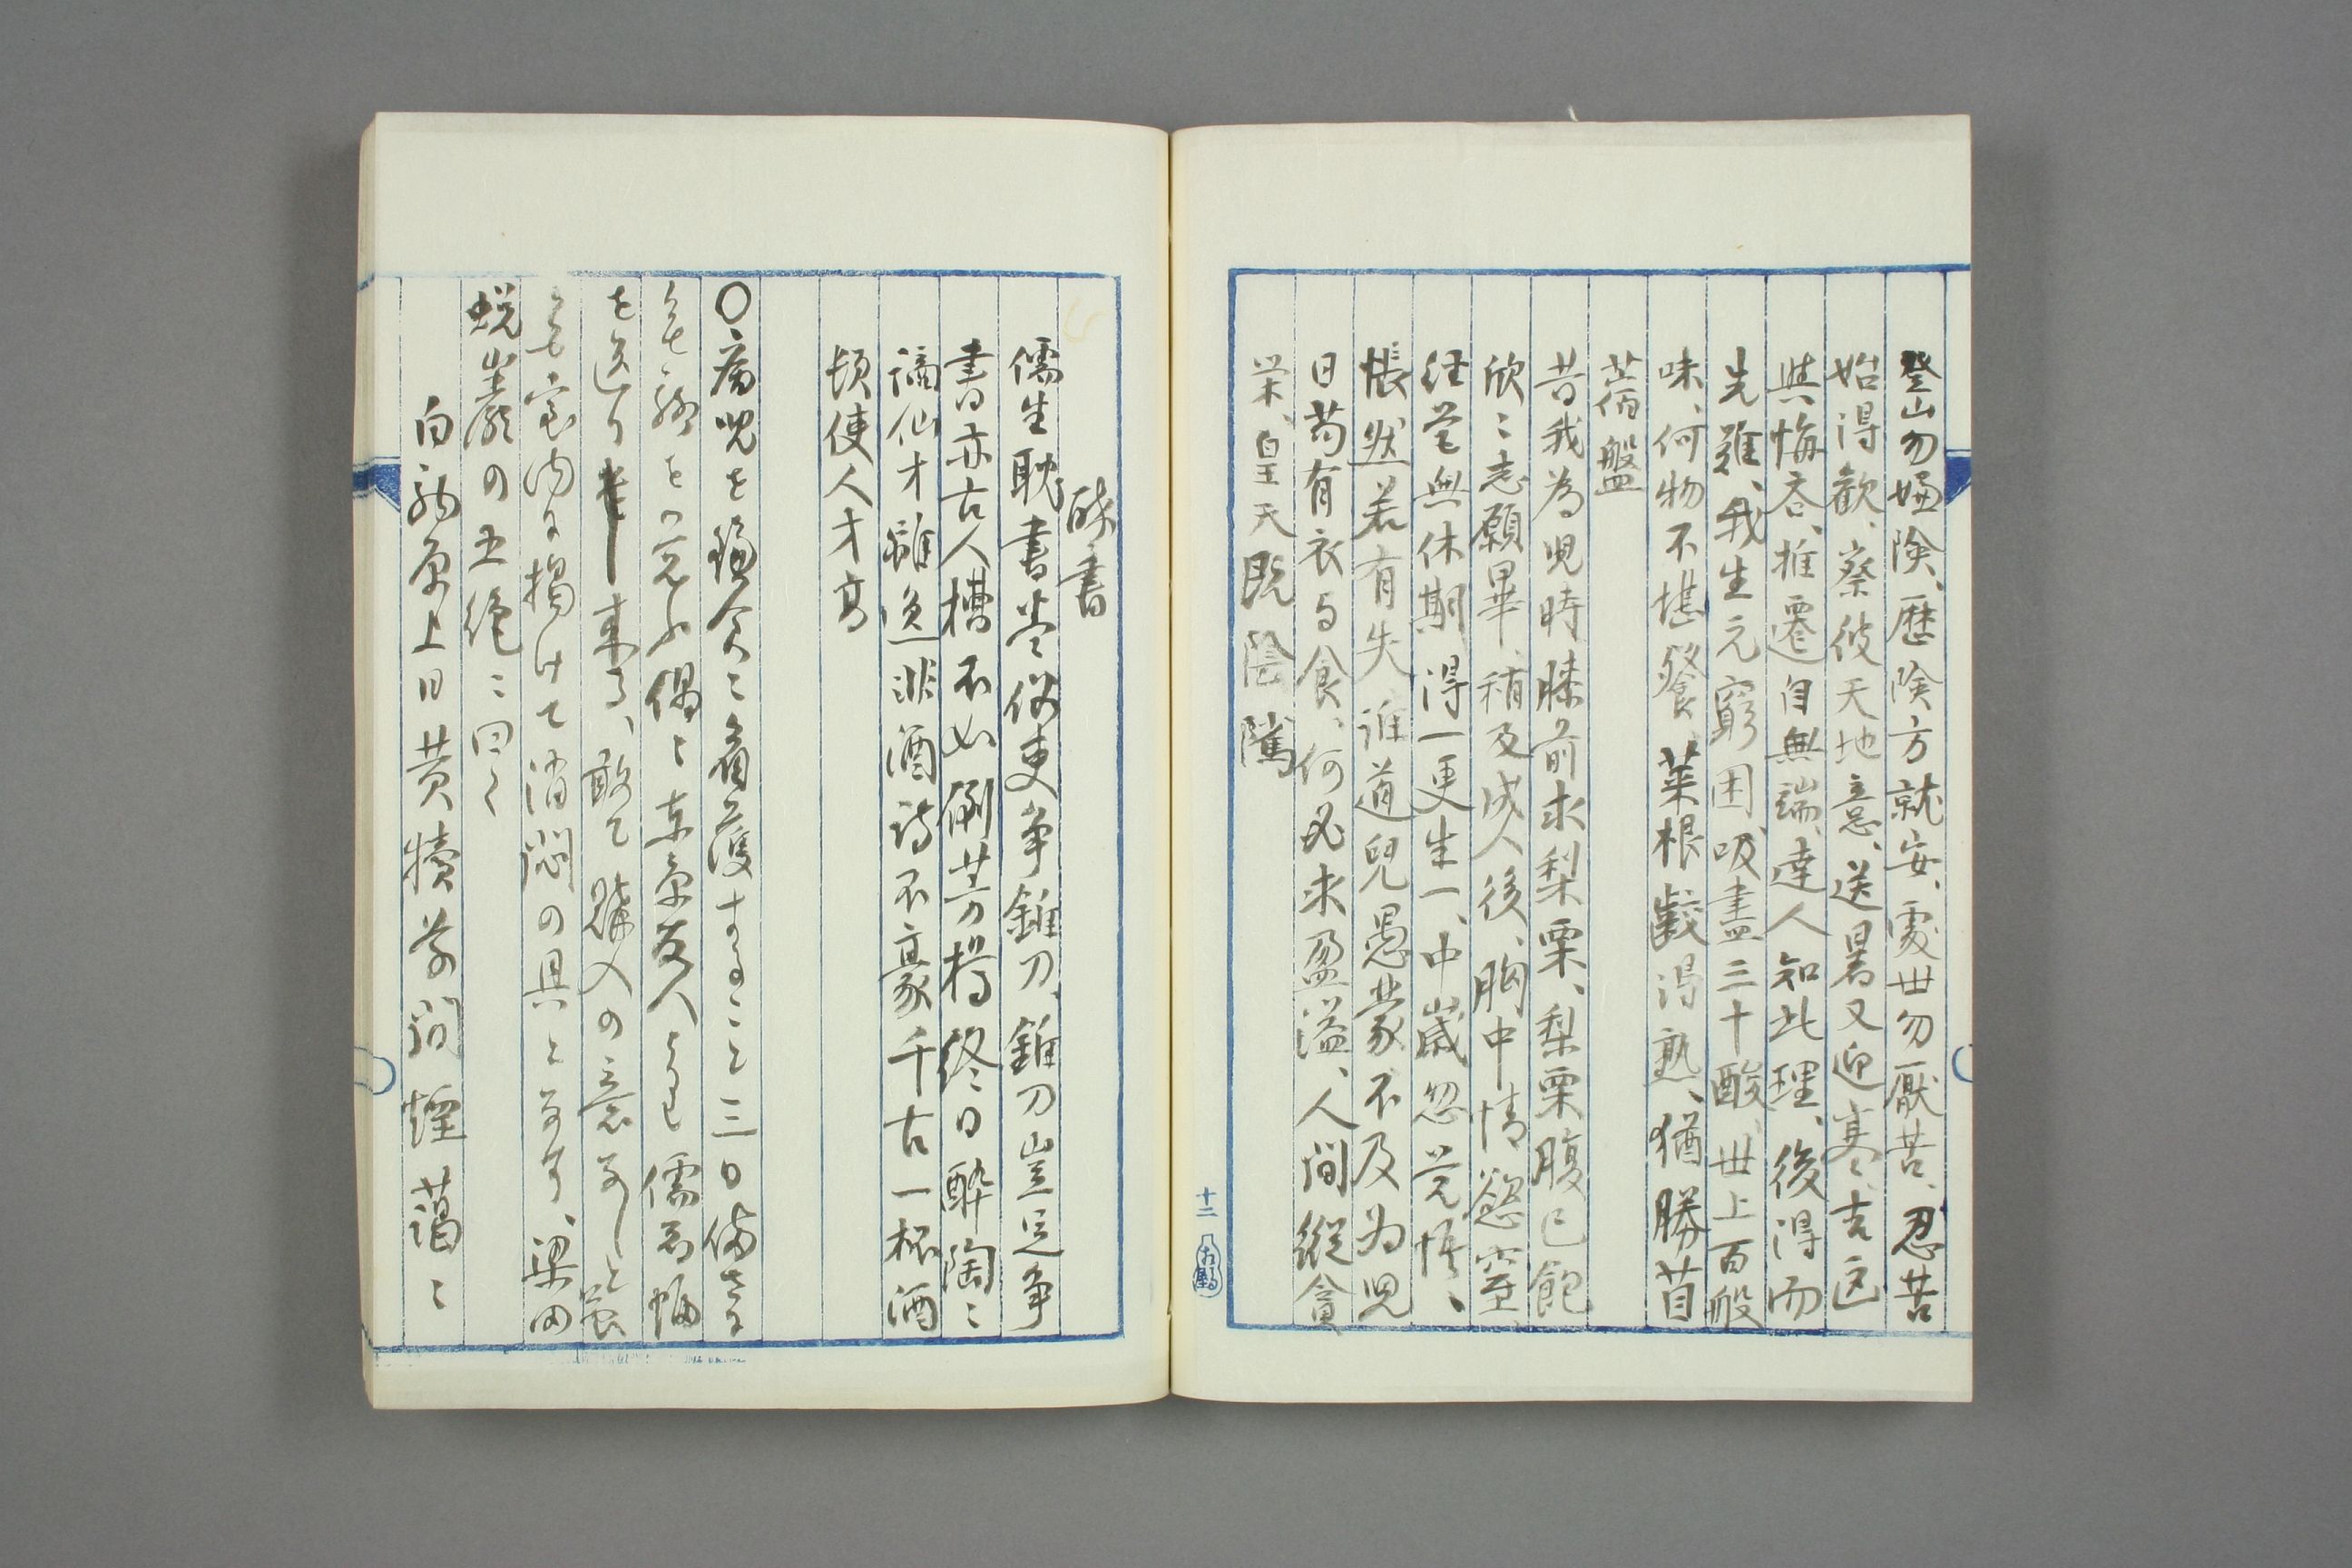 登山勿嫌険、歴険方就安、処世勿厭苦、忍苦
始得歓、察彼天地意、送暑又迎寒、吉凶
与悔吝、推遷自無端、達人知此理、後得而
先難、我生元窮困、吸盡三十酸、世上百般
味、何物不堪餐、菜根齩得熟、猶勝苜
蓿盤
昔我為児時膝前求梨栗、梨栗腹已飽
欣ミ志願畢、稍及成人後、胸中情慾窒、
経営無休期、得一更生一、中歳忽覚悟、
悵然若有失、誰道児愚蒙不及為児
日苟有衣与食、何必求盈溢、人間縦貪
栄、皇天既陰騭
十二
酔書
儒生耽書 俗吏争錐刀、錐刀豈足争
書亦古人糟不如倒芳樽終日酔陶ミ
謫仙才雖逸非酒詩不豪千古一杯酒
頓使人才高
〇病 を 看護すること三日
を 偶ミ東京友人より 儒者
を送り来る、敢て購入の意なしと
も室内に掲けて消悶の具となす、梁田
蛻巌の五絶ニ曰く
白 原上日 黄犢草間煙 藹ミ